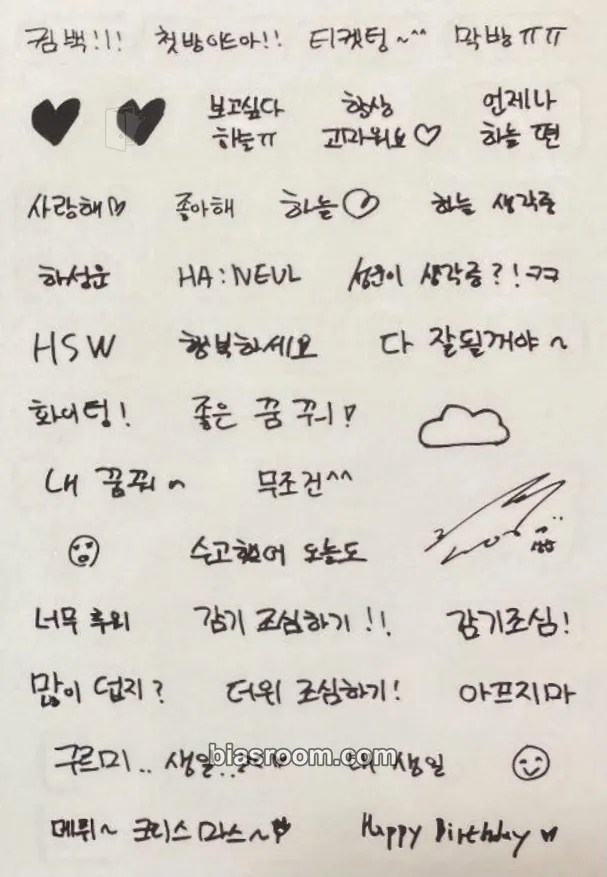 컴백!!! 첫방이드아!! 티켓팅~^^ 막방ㅠㅠ
보고싶다 항상 언제나
하늘ㅠ 고마워요♡ 하늘 편
사랑해 좋아해 하늘♡ 하늘 생각중
하성운 HA:NEUL 성운이 생각중?!ㅋㅋ
HSW 행복하세요 다 잘될꺼야~
화이팅! 좋은 꿈 꾸의!
내 꿈꿔~ 무조건^^
수고했어 오늘도
너무 추워 감기 조심하기!! 감기조심!
많이 덥지? 더위 조심하기! 아프지마
구르미.. 생일.. 생일
biasroom.com
메뤼~ 크리스마스~♥ Happy Birthday ♥